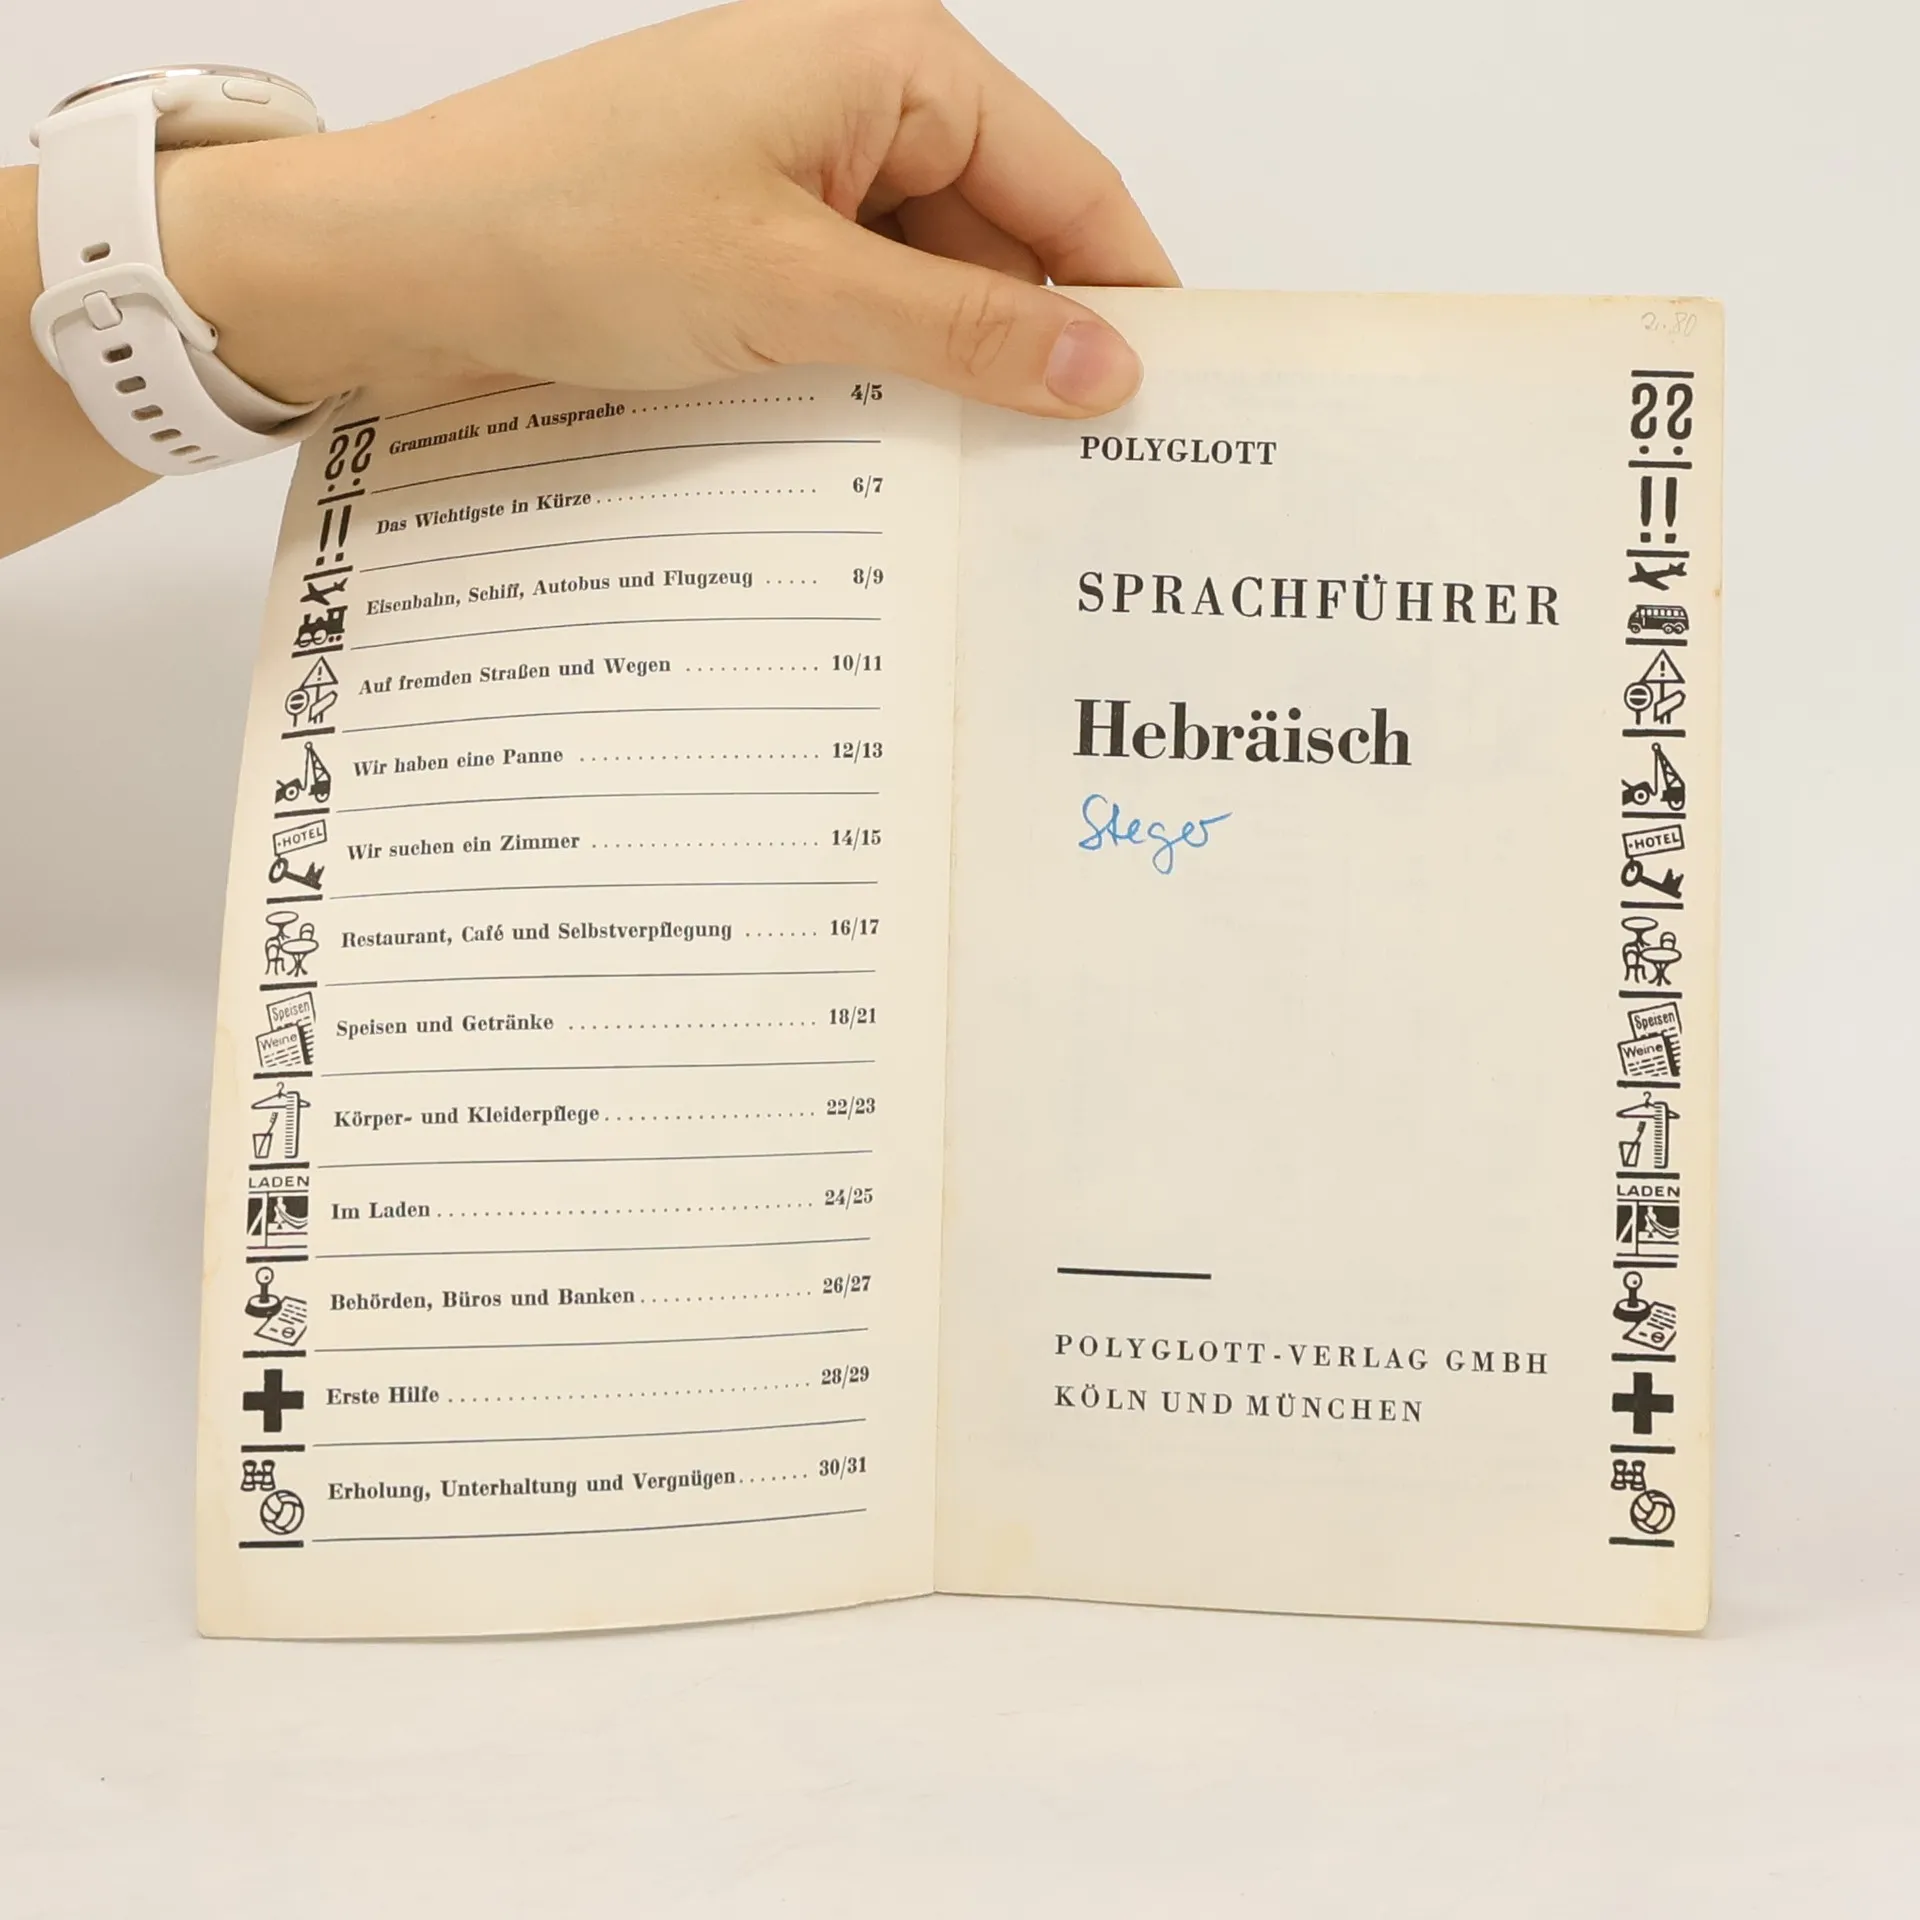 Grammatik und Aussprache ................. 4/5
Das Wichtigste in Kürze .................... 6/7
Eisenbahn, Schiff, Autobus und Flugzeug ..... 8/9
Auf fremden Straßen und Wegen ............ 10/11
Wir haben eine Panne ..................... 12/13
HOTEL
Wir suchen ein Zimmer .................... 14/15
Restaurant, Café und Selbstverpflegung ....... 16/17
Speisen
Weine
Speisen und Getränke ...................... 18/21
Körper- und Kleiderpflege ................... 22/23
LADEN
Im Laden ................................. 24/25
Behörden, Büros und Banken ................ 26/27
Erste Hilfe ................................ 28/29
Erholung, Unterhaltung und Vergnügen ....... 30/31
2.80
POLYGLOTT
SPRACHFÜHRER
Hebräisch
Steger
POLYGLOTT-VERLAG GMBH
KÖLN UND MÜNCHEN
??
!!
HOTEL
Speisen
Weine
LADEN